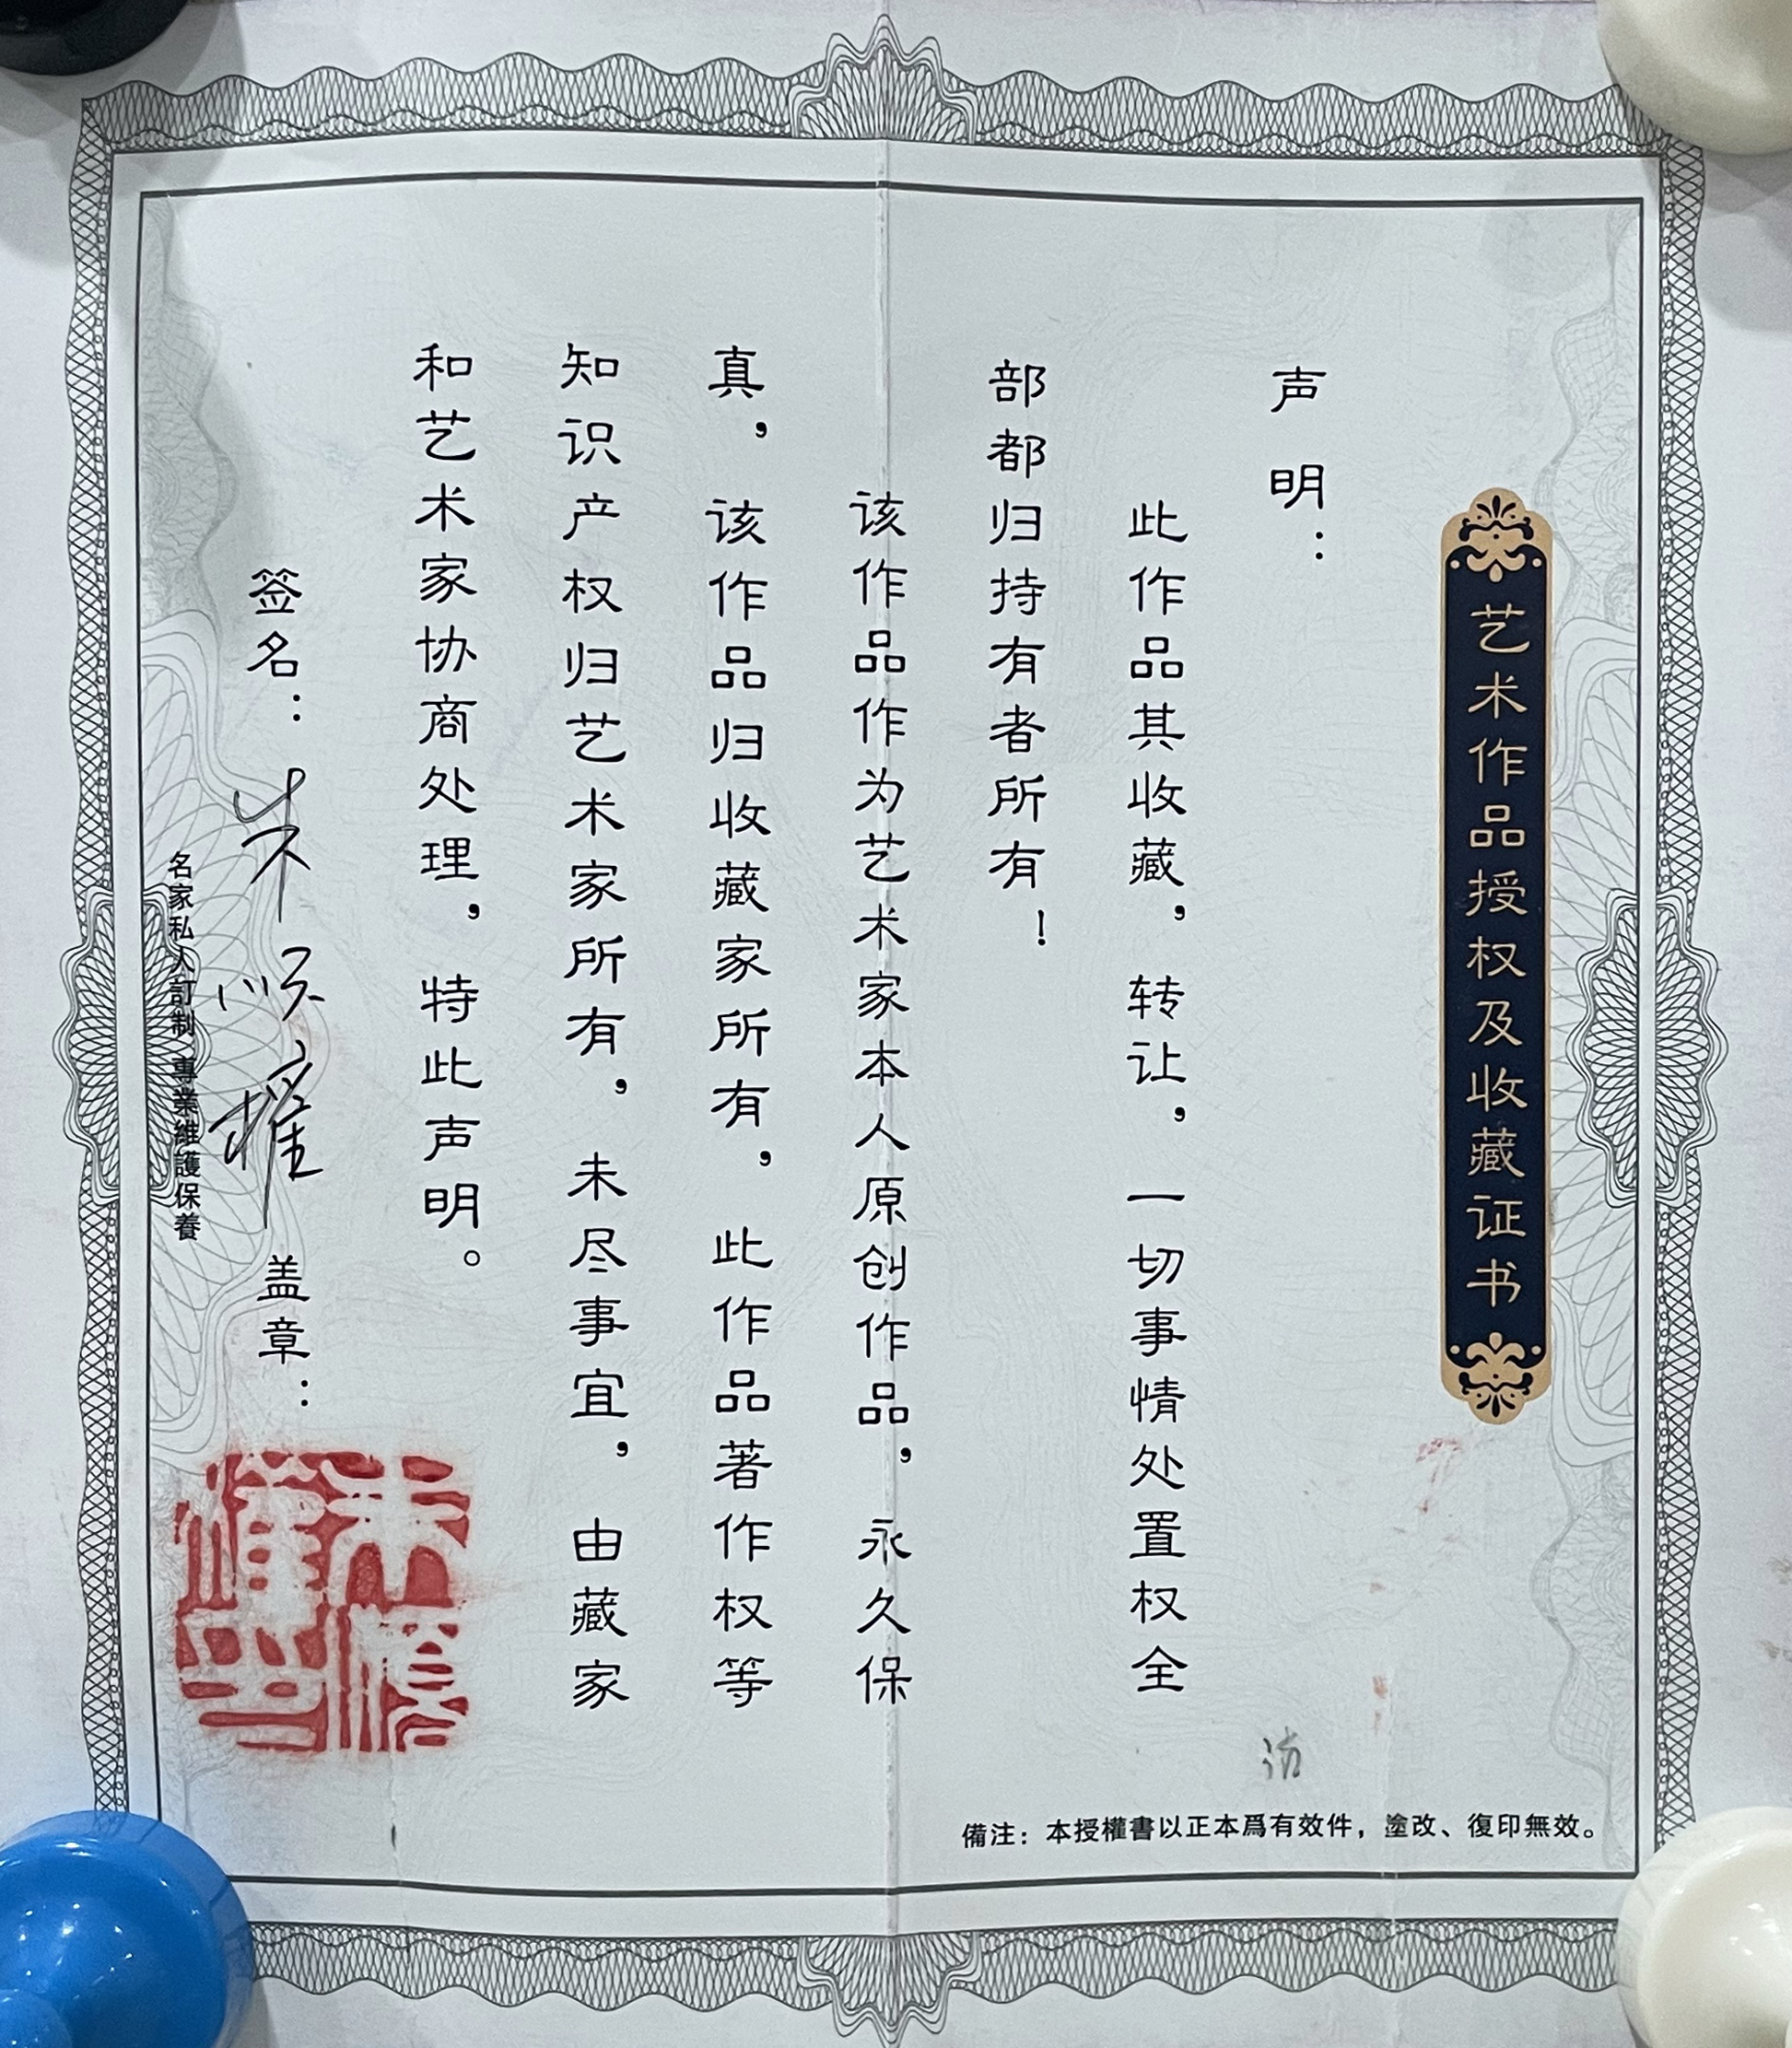 艺术作品授权及收藏证书
声明：
此作品其收藏，转让，一切事情处置权全
部都归持有者所有！
该作品作为艺术家本人原创作品，永久保
真，该作品归收藏家所有，此作品著作权等
知识产权归艺术家所有，未尽事宜，由藏家
和艺术家协商处理，特此声明。
签名：朱顺耀
盖章：
名家私人訂制 專業維護保養
備注：本授權書以正本爲有效件，塗改、復印無效。